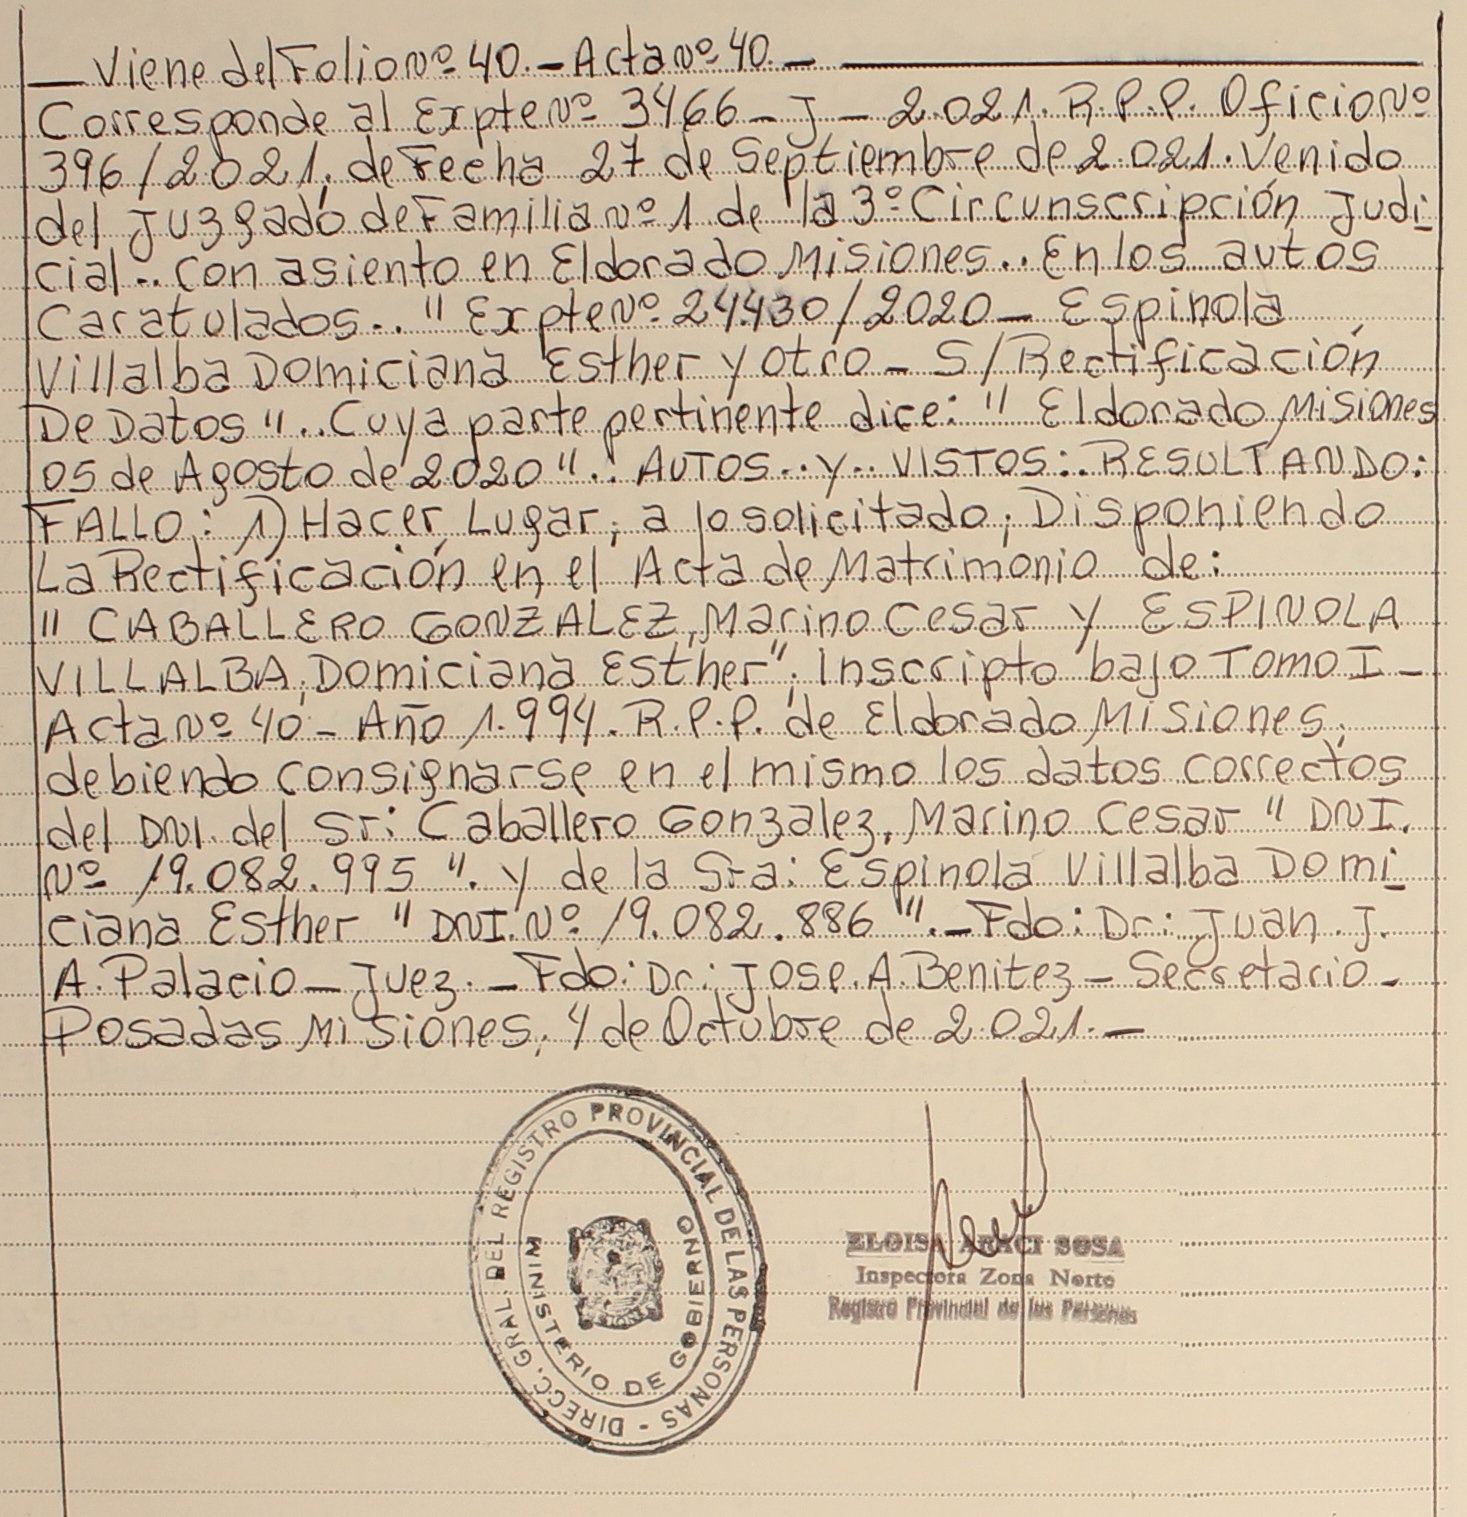 — Viene del Folio Nº 40. – Acta Nº 40. –
Corresponde al Expte Nº 3466 – J – 2.021. R.P.P. Oficio Nº
396/2.021, de Fecha 27 de Septiembre de 2.021. Venido
del Juzgado de Familia Nº 1 de la 3º Circunscripción Judi-
cial.. con asiento en Eldorado Misiones.. En los autos
Caratulados.. "Expte Nº 24.430/2020 – Espinola
Villalba Domiciana Esther y otro – S/Rectificación
De Datos".. Cuya parte pertinente dice: "Eldorado Misiones
05 de Agosto de 2.020".. AUTOS.. Y.. VISTOS:. RESULTANDO:
FALLO: 1) Hacer Lugar, a lo solicitado, Disponiendo
La Rectificación en el Acta de Matrimonio de:
"CABALLERO GONZALEZ, Marino Cesar y ESPINOLA
VILLALBA, Domiciana Esther", Inscripto bajo Tomo I –
Acta Nº 40 – Año 1.994. R.P.P. de Eldorado Misiones,
debiendo consignarse en el mismo los datos correctos
del DNI. del Sr: Caballero Gonzalez, Marino Cesar "DNI.
Nº 19.082.995". y de la Sra: Espinola Villalba Domi-
ciana Esther "DNI. Nº 19.082.886". – Fdo: Dr: Juan. J.
A. Palacio – Juez. – Fdo: Dr: Jose. A. Benitez – Secretario –
Posadas Misiones, 4 de Octubre de 2.021. –
DIRECC. GRAL. DEL REGISTRO PROVINCIAL DE LAS PERSONAS -
MINISTERIO DE GOBIERNO
ELOISA ARACI SOSA
Inspectora Zona Norte
Registro Provincial de las Personas